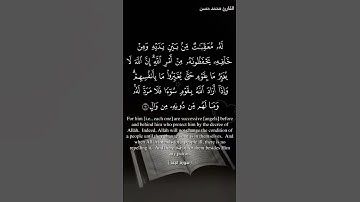 القارئ محمد حسن
لَهُۥ مُعَقِّبَٰتٌ مِّنۢ بَيْنِ يَدَيْهِ وَمِنْ
خَلْفِهِۦ يَحْفَظُونَهُۥ مِنْ أَمْرِ ٱللَّهِ ۗ إِنَّ ٱللَّهَ لَا
يُغَيِّرُ مَا بِقَوْمٍ حَتَّىٰ يُغَيِّرُوا۟ مَا بِأَنفُسِهِمْ ۗ
وَإِذَآ أَرَادَ ٱللَّهُ بِقَوْمٍ سُوٓءًا فَلَا مَرَدَّ لَهُۥ ۚ
وَمَا لَهُم مِّن دُونِهِۦ مِن وَالٍ ١١
For him [i.e., each one] are successive [angels] before
and behind him who protect him by the decree of
Allāh. Indeed, Allah will not change the condition of
a people until they change what is in themselves. And
when Allah intends for a people ill, there is no
repelling it. And there is not for them besides Him
any patron.